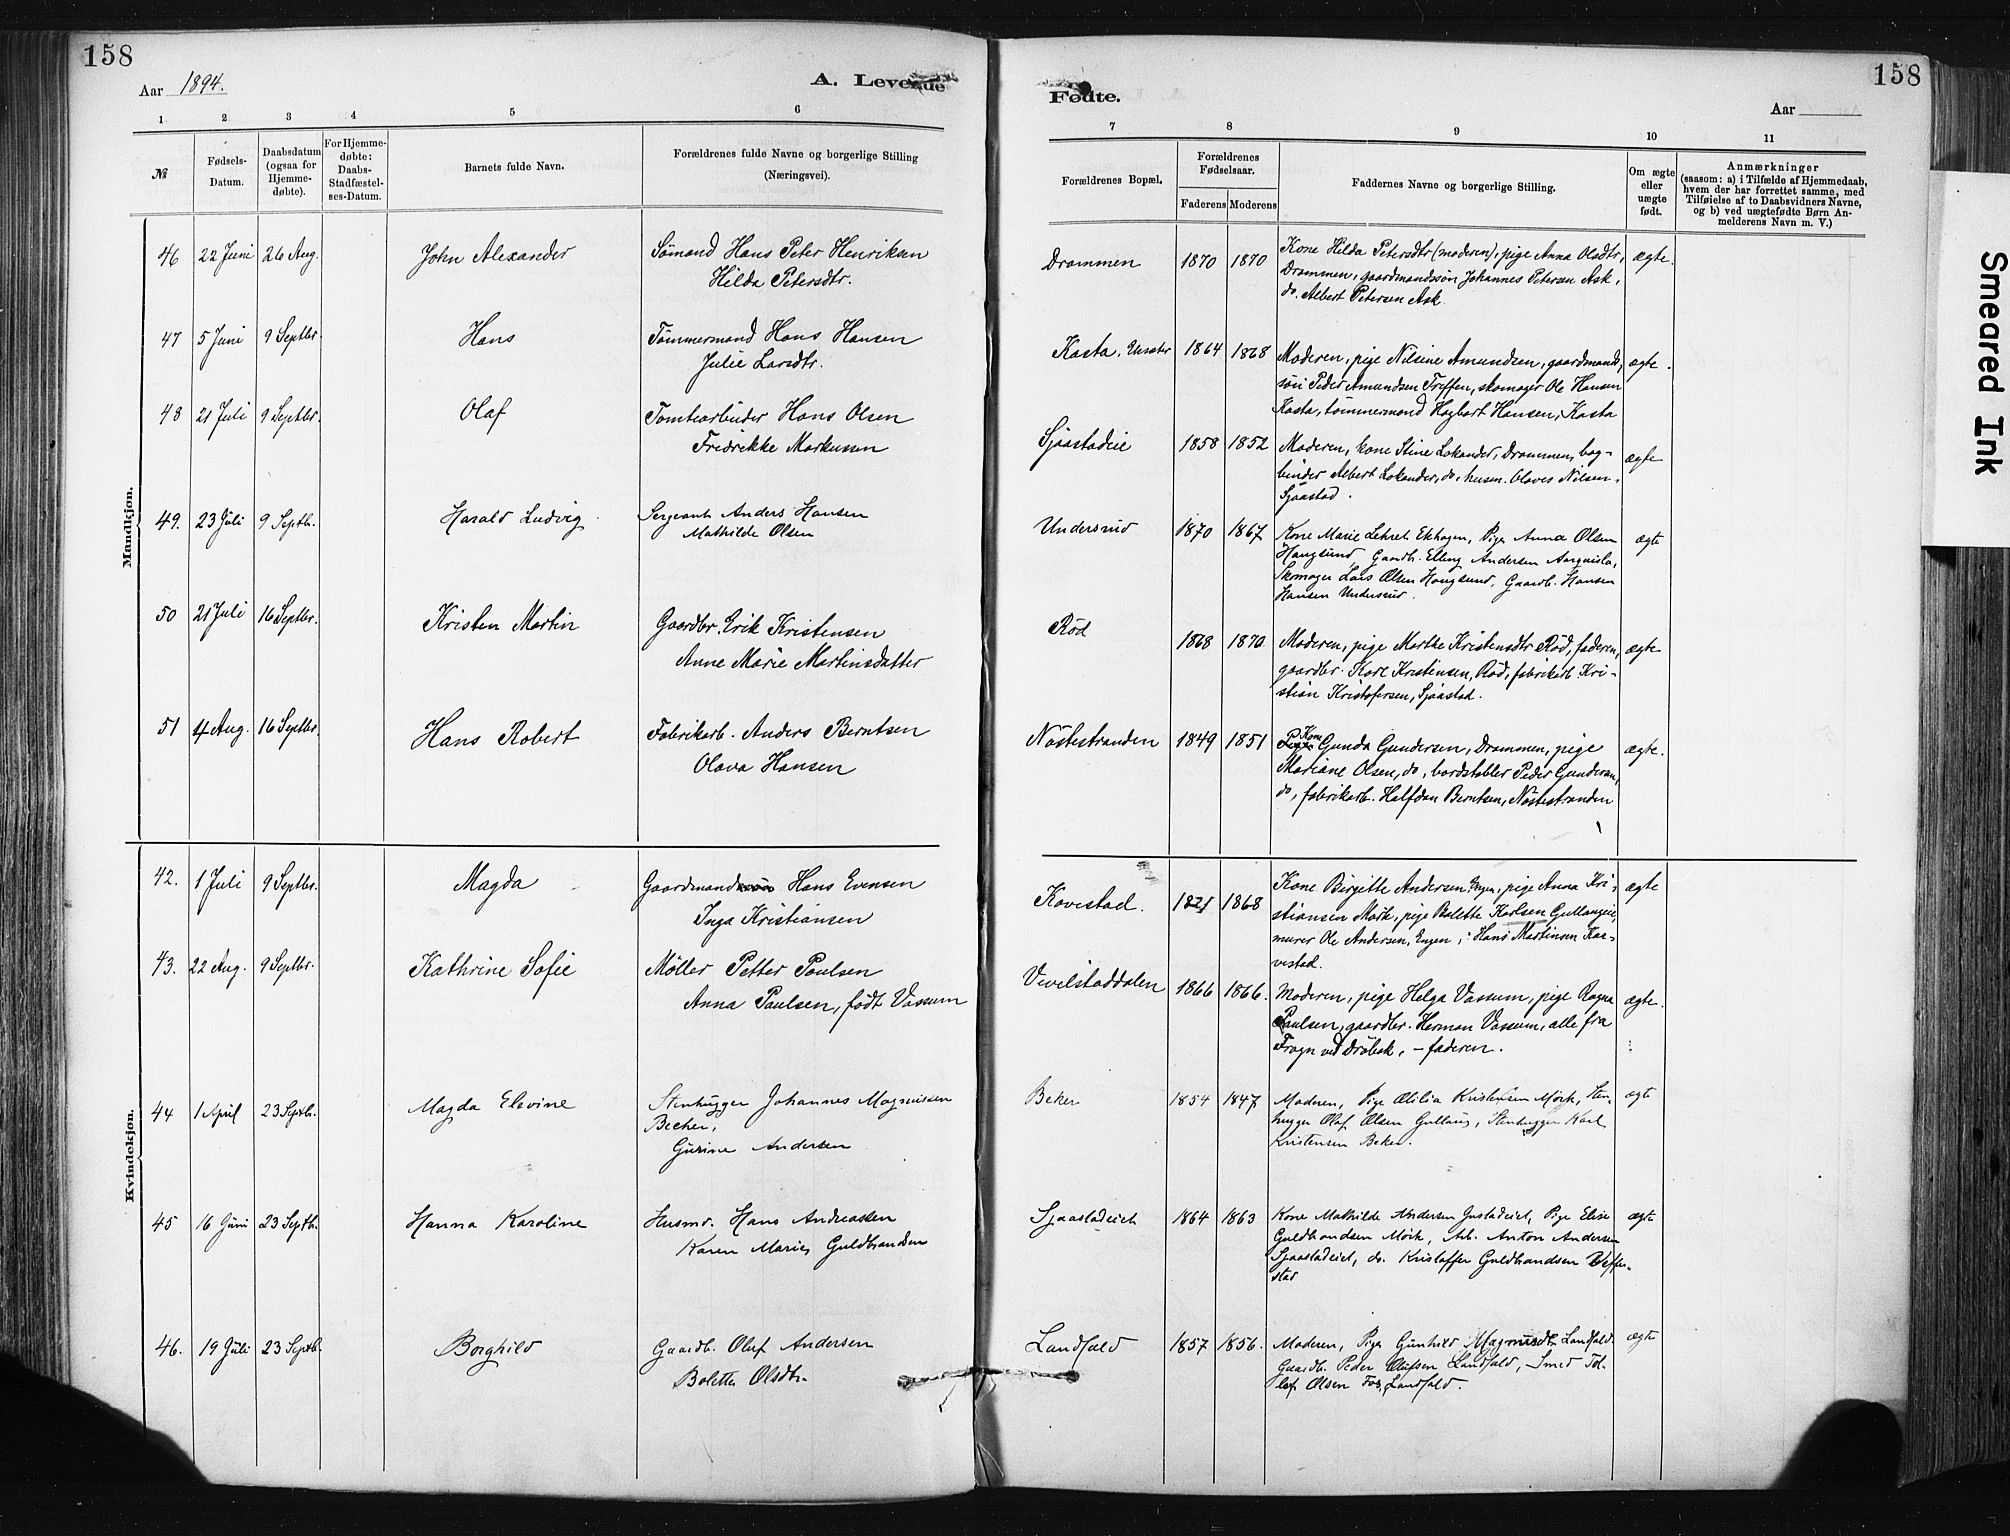 158
Aar 1894.
A. Levende
1 2 3 4 5 6
№
Fødsels-
Datum.
Daabsdatum
(ogsaa for
Hjemme-
døbte).
For Hjemme-
døbte:
Daabs-
Stadfæstel-
ses-Datum.
Barnets fulde Navn.
Forældrenes fulde Navne og borgerlige Stilling
(Næringsvei).
Mandkjøn.
46 22 Juni 26 Aug. John Alexander Sømand Hans Peter Henriksen
Hilda Petersdtr.
47 5 Juni 9 Septbr. Hans Tømmermand Hans Hansen
Julie Larsdtr.
48 21 Juli 9 Septbr. Olaf Tomtearbeider Hans Olsen
Fredrikke Markussen
49. 23 Juli 9 Septb. Harald Ludvig Sergeant Anders Hansen
Mathilde Olsen
50 21 Juli 16 Septbr. Kristen Martin Gaardbr. Erik Kristensen
Anne Marie Martinsdatter
51 4 Aug. 16 Septbr. Hans Robert Fabrikarb. Anders Berntsen
Olava Hansen
Kvindekjøn.
42. 1 Juli 9 Septbr. Magda Gaardmand Hans Evensen
Inga Kristiansen
43. 22 Aug. 9 Septbr. Kathrine Sofie Møller Petter Paulsen
Anna Paulsen, født Vassum
44 1 April 23 Septb. Magda Elevine Stenhugger Johannes Magnussen
Becher,
Gurine Andersen
45 16 Juni 23 Septb. Hanna Karoline Husmd. Hans Andreassen
Karen Marie Guldbrandsen
46. 19 Juli 23 Septb. Borghild Gaardb. Oluf Andersen
Bolette Olsdtr.
158
Fødte.
Aar
7 8 9 10 11
Forældrenes Bopæl.
Forældrenes
Fødselsaar.
Faderens Moderens
Faddernes Navne og borgerlige Stilling.
Om ægte
eller
uægte
født.
Anmærkninger
(saasom: a) i Tilfælde af Hjemmedaab,
hvem der har forrettet samme, med
Tilføielse af to Daabsvidners Navne,
og b) ved uægtefødte Børn An-
melderens Navn m. V.)
Drammen 1870 1870 Kone Hilda Petersdtr (moderen), pige Anna Olsdtr, ægte.
Drammen, gaardmandssøn Johannes Petersen Ask,
do. Albert Petersen Ask
Kasta, 1864 1868 Moderen, pige Nilsine Amundsen, gaardmands- ægte.
søn Peder Amundsen Treffen, skomager Ole Hansen
Kasta, tømmermand Hagbart Hansen, Kasta
Sjaastadeie 1858 1852 Moderen, kone Stine Lokander, Drammen, bog- ægte
binder Albert Lokander, do. husm. Olaves Nilsen
Sjaastad.
Undersrud 1870 1867 Kone Marie Ekhagen, Pige Anna Olsen ægte
Haugsund, Gaardb. Elling Andersen
Skomager Lars Olsen Haugsund, Gaardb. Hansen
Hansen Undersrud.
Rød 1868 1870 Moderen, pige Marthe Kristensdtr Rød, faderen, ægte
gaardbr. Karl Kristensen, Rød, fabrikarb. Kri-
stian Kristofersen, Sjaastad.
Nøstestranden 1849 1851 Kone Gunda Gundersen, Drammen, pige ægte.
Mariane Olsen, do, bordstabler Peder Gundersen,
do, fabrikarb. Halfdan Berntsen, Nøstestranden
Kovestad. 1868 Kone Birgitte Andersen Engen, pige Anna Kri- ægte
stiansen Mørk, pige Bolette Karlsen Gullaugeie,
murer Ole Andersen, Engen, Hans Martinsen Kaa-
vestad.
Vevelstaddalen 1866 1866. Moderen, pige Helga Vassum, pige Ragna ægte.
Paulsen, gaardbr. Herman Vassum, alle fra
Frogn ved Drøbak, – faderen.
Beker 1854 1847 Moderen, Pige Otilia Kristensen Mørk, Sten- ægte
hugger Olaf Olsen Gullaug, Stenhugger Karl
Kristensen Beker.
Sjaastadeiet 1864 1863 Kone Mathilde Andersen Pige Elise ægte
Guldbrandsen Mørk, Arb. Anton Andersen
Sjaastadeiet, do. Kristoffer Guldbrandsen Veffer-
stad
Landfald 1857 1856. Moderen, Pige Gunhild Magnusdtr Landfald. ægte
Gaardb. Peder Olufsen Landfald, Smed Tol-
lef Olsen Fos, Landfald.
Smeared Ink